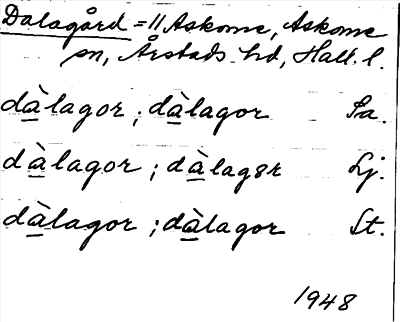 Dalagård = 11 Askome, Askome
sn, Årstads hd, Hall. l.
dàlagor; dàlagor Sa.
dàlagor; dàlagɤr Lj.
dàlagor; dàlagor St.
1948